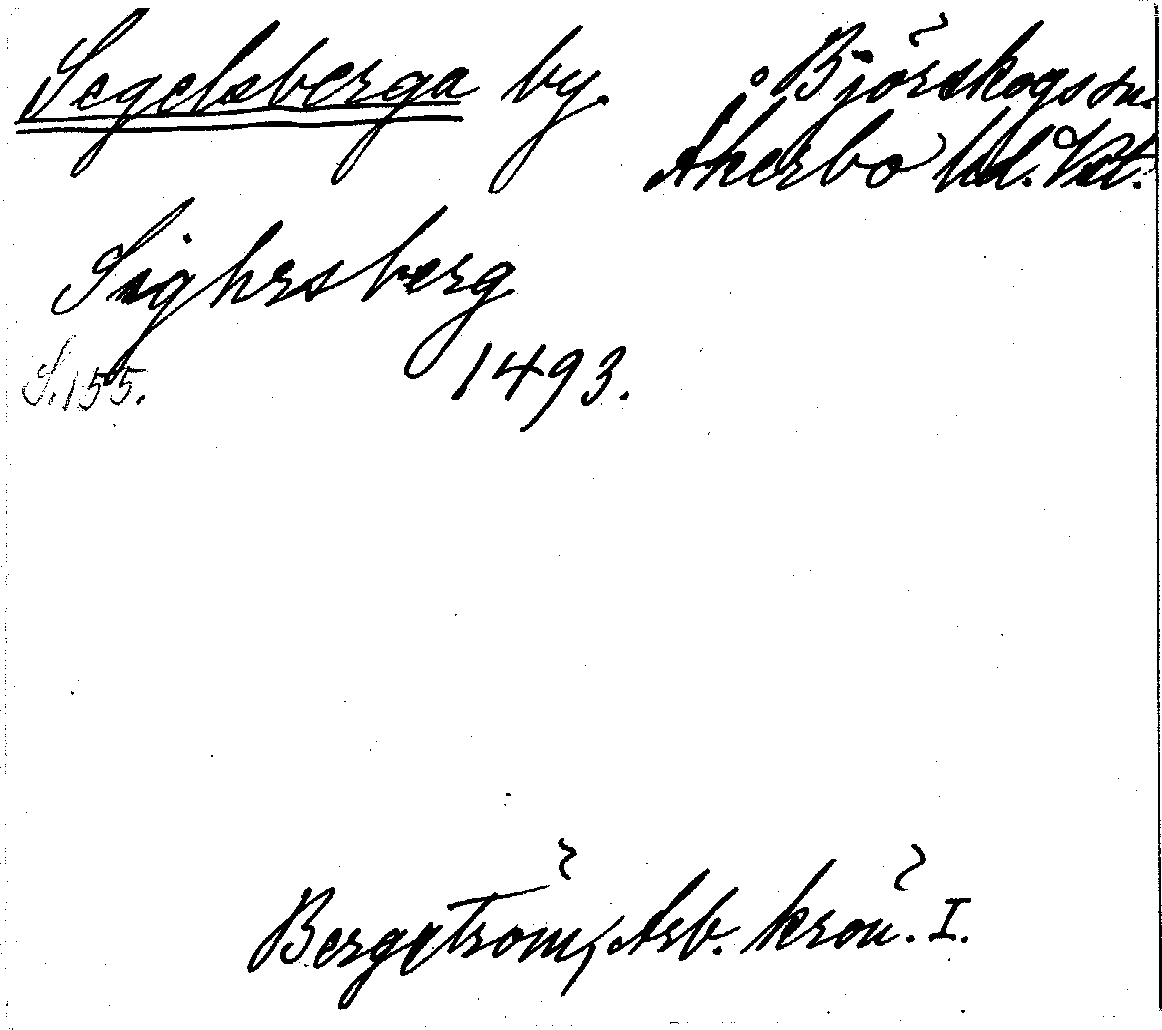 Segelsberga by. Björskogs sn.
Åkerbo hd. Vstm.
Sighrsberg
S. 155. 1493.
Bergström, Arb. krön. I.